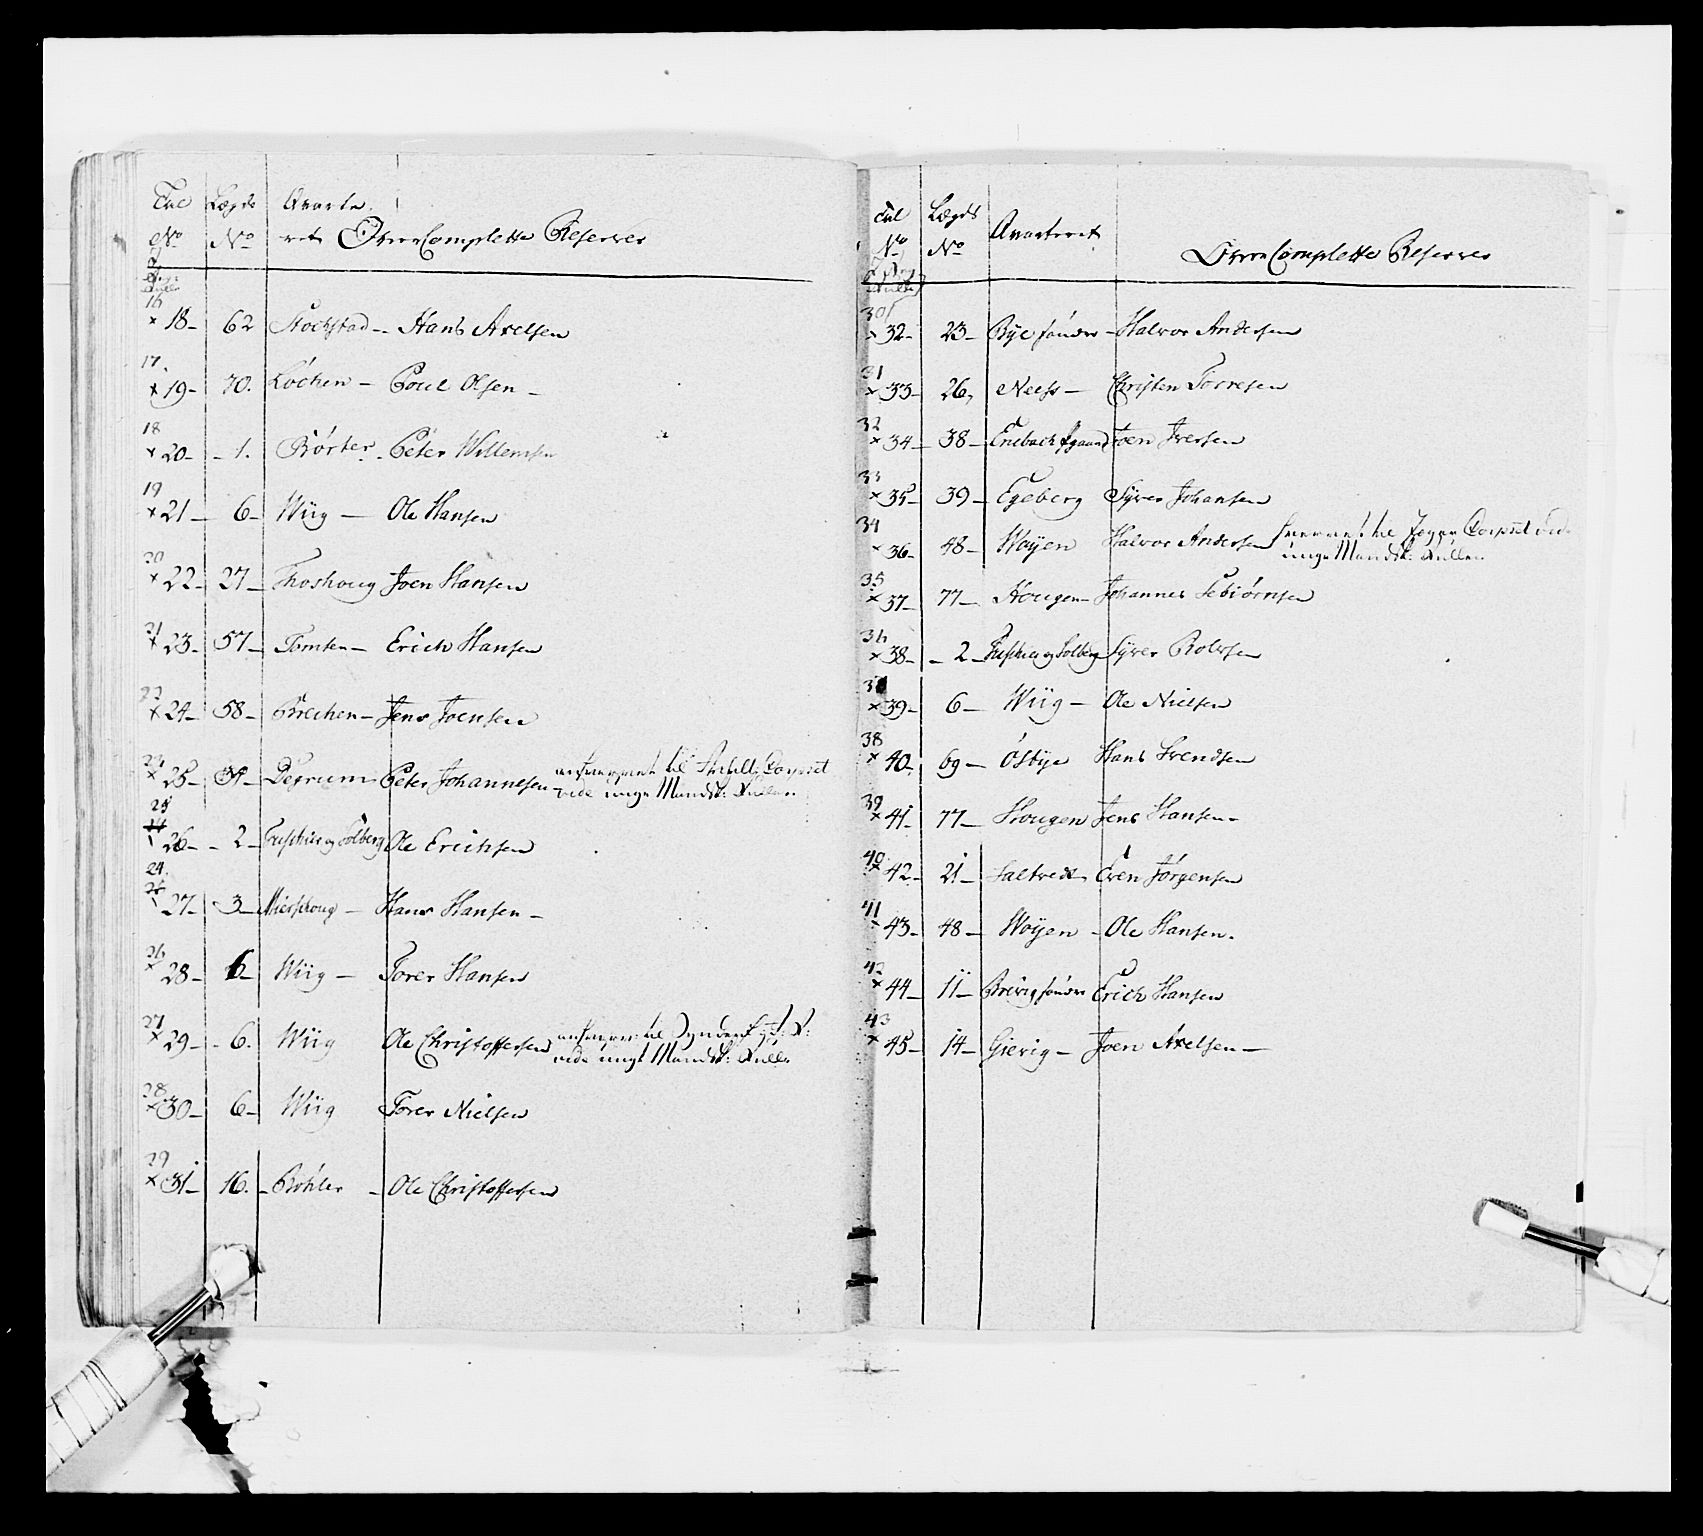 Tal Lægds Qvarte
No No ret OverComplette Reserver
16
× 18 – 62 Stochstad – Hans Axelsen
17.
× 19 – 70. Lóchen – Poul Olsen –
18
× 20 – 1. Börter – Peter Willemsen
19
× 21 – 6 – Wiig – Ole Hansen
20
× 22 – 27 – Thoshoug Joen Hansen
21
× 23 – 57 – Tomten – Erich Hansen
22
× 24 – 58 – Brechen – Jens Joensen
23
× 25 – Degrum Peter Johannesen
vide unge Mandsk: Rullen
25
26 – 2 – og Solberg Ole Erichsen
24.
27 – 3 – Mierschoug – Hans Hansen –
26
× 28 – 6 – Wiig – Torer Hansen
27
× 29 – 6. Wiig Ole Christoffersen
vide ungt Mandsk: Rulle
28
× 30 – 6 – Wiig Torer Nielsen
29
× 31 – 16. – Böhler – Ole Christoffersen
Tal Lægds Qvarteret
No No OverComplette Reserver
30
× 32 – 23 – Bye sönder – Halvor Andersen
31
× 33 – 26, Neess – Christen Torresen
32
× 34 – 38 – Enebach Joen Iversen
33
× 35 – 39 – Egeberg Syver Johansen
34
× 36 – 48 – Woyen Halvor Andersen til Jæger Corpset vide
unge Mandsk: Rullen
35
× 37 – 77 – Hougen – Johannes
36
× 38 – 2 – og Solberg Syver Rolvsen
× 39 – 6 – Wiig – Ole Nielsen
38
× 40 – 69 – Óstbye Hans Svendsen
39
× 41 – 77 – Hougen Jens Hansen –
40
× 42 – 21 – Saltvedt Even Jörgensen
41
× 43 – 48 – Woyen – Ole Hansen.
42
× 44 – 11 – sönder Erich Hansen
43
× 45 – 14 – Gievig – Joen Axelsen –